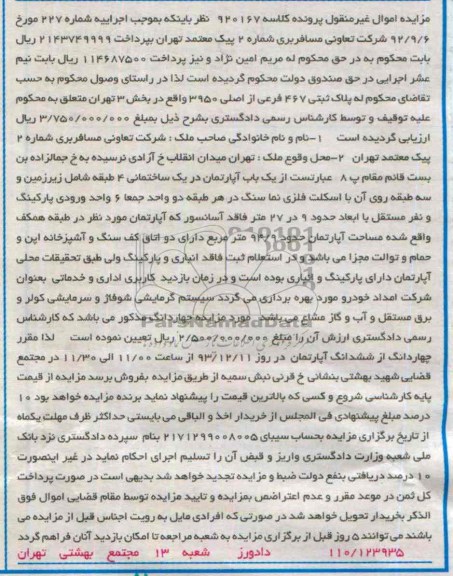 مزایده اموال غیرمنقول پرونده کلاسه ۹۲۰۱۶۷ نظر باینکه بموجب اجراییه شماره ۲۲۷ مورخ
۹۲/۹/۶ شرکت تعاونی مسافربری شماره ۲ پیک معتمد تهران بپرداخت ۲۱۴۳۷۴۹۹۹۹ ریال
بابت محکوم به در حق محکوم له مریم امین نژاد و نیز پرداخت ۱۱۴۶۸۷۵۰۰ ریال بابت نیم
عشر اجرایی در حق صندوق دولت محکوم گردیده است لذا در راستای وصول محکوم به حسب
تقاضای محکوم له پلاک ثبتی ۴۶۷ فرعی از اصلی ۳۹۵۰ واقع در بخش ۳ تهران متعلق به محکوم
علیه توقیف و توسط کارشناس رسمی دادگستری بشرح ذیل بمبلغ ۳/۷۵۰/۰۰۰/۰۰۰ ریال
ارزیابی گردیده است ۱-نام و نام خانوادگی صاحب ملک : شرکت تعاونی مسافربری شماره ۲
پیک معتمد تهران ۲-محل وقوع ملک : تهران میدان انقلاب خ آزادی نرسیده به خ جمالزاده بن
بست قائم مقام پ ۸ عبارتست از یک باب آپارتمان در یک ساختمانی ۴ طبقه شامل زیرزمین و
سه طبقه روی آن با اسکلت فلزی نما سنگ در هر طبقه دو واحد جمعا ۶ واحد ورودی پارکینگ
و نفر مستقل با ابعاد حدود ۹ در ۲۷ متر فاقد آسانسور که آپارتمان مورد نظر در طبقه همکف
واقع شده مساحت آپارتمان حدود ۹۴/۹ متر مربع دارای دو اتاق کف سنگ و آشپزخانه اپن و
حمام و توالت مجزا می باشد و در استعلام ثبت فاقد انباری و پارکینگ ولی طبق تحقیقات محلی
آپارتمان دارای پارکینگ و انباری بوده است و در زمان بازدید کاربری اداری و خدماتی بعنوان
شرکت امداد خودرو مورد بهره برداری می گردد سیستم گرمایشی شوفاژ و سرمایشی کولر و
برق مستقل و آب و گاز مشاع می باشد . مورد مزایده چهاردانگ مذکور می باشد که کارشناس
رسمی دادگستری ارزش آن را مبلغ ۲/۵۰۰/۰۰۰/۰۰۰ ریال تعیین نموده است لذا مقرر
چهاردانگ از ششدانگ آپارتمان در روز ۹۳/۱۲/۱۱ از ساعت ۱۱/۰۰ الی ۱۱/۳۰ در مجتمع
قضایی شهید بهشتی بنشانی خ قرنی نبش سمیه از طریق مزایده بفروش برسد مزایده از قیمت
پایه کارشناسی شروع و کسی که بالاترین قیمت را پیشنهاد نماید برنده مزایده خواهد بود ۱۰
درصد مبلغ پیشنهادی فی المجلس از خریدار اخذ و الباقی می بایستی حداکثر ظرف مهلت یکماه
از تاریخ برگزاری مزایده بحساب سیبای ۲۱۷۱۲۹۹۰۰۸۰۰۵ بنام سپرده دادگستری نزد بانک
ملی شعبه وزارت دادگستری واریز و قبض آن را تسلیم اجرای احکام نماید در غیر اینصورت
۱۰ درصد دریافتی بنفع دولت ضبط و مزایده تجدید خواهد شد بدیهی است در صورت پرداخت
کل ثمن در موعد مقرر و عدم اعتراض بمزایده و تایید مزایده توسط مقام قضایی اموال فوق
الذکر بخریدار تحویل خواهد شد در صورتی که افرادی مایل به رویت اجناس قبل از مزایده می
باشند می توانند ۵ روز قبل از برگزاری مزایده به شعبه مراجعه تا امکان بازدید آنان فراهم گردد
۱۱۰/۱۲۳۹۳۵ دادورز شعبه ۱۳ مجتمع بهشتی تهران
ParsNamadData